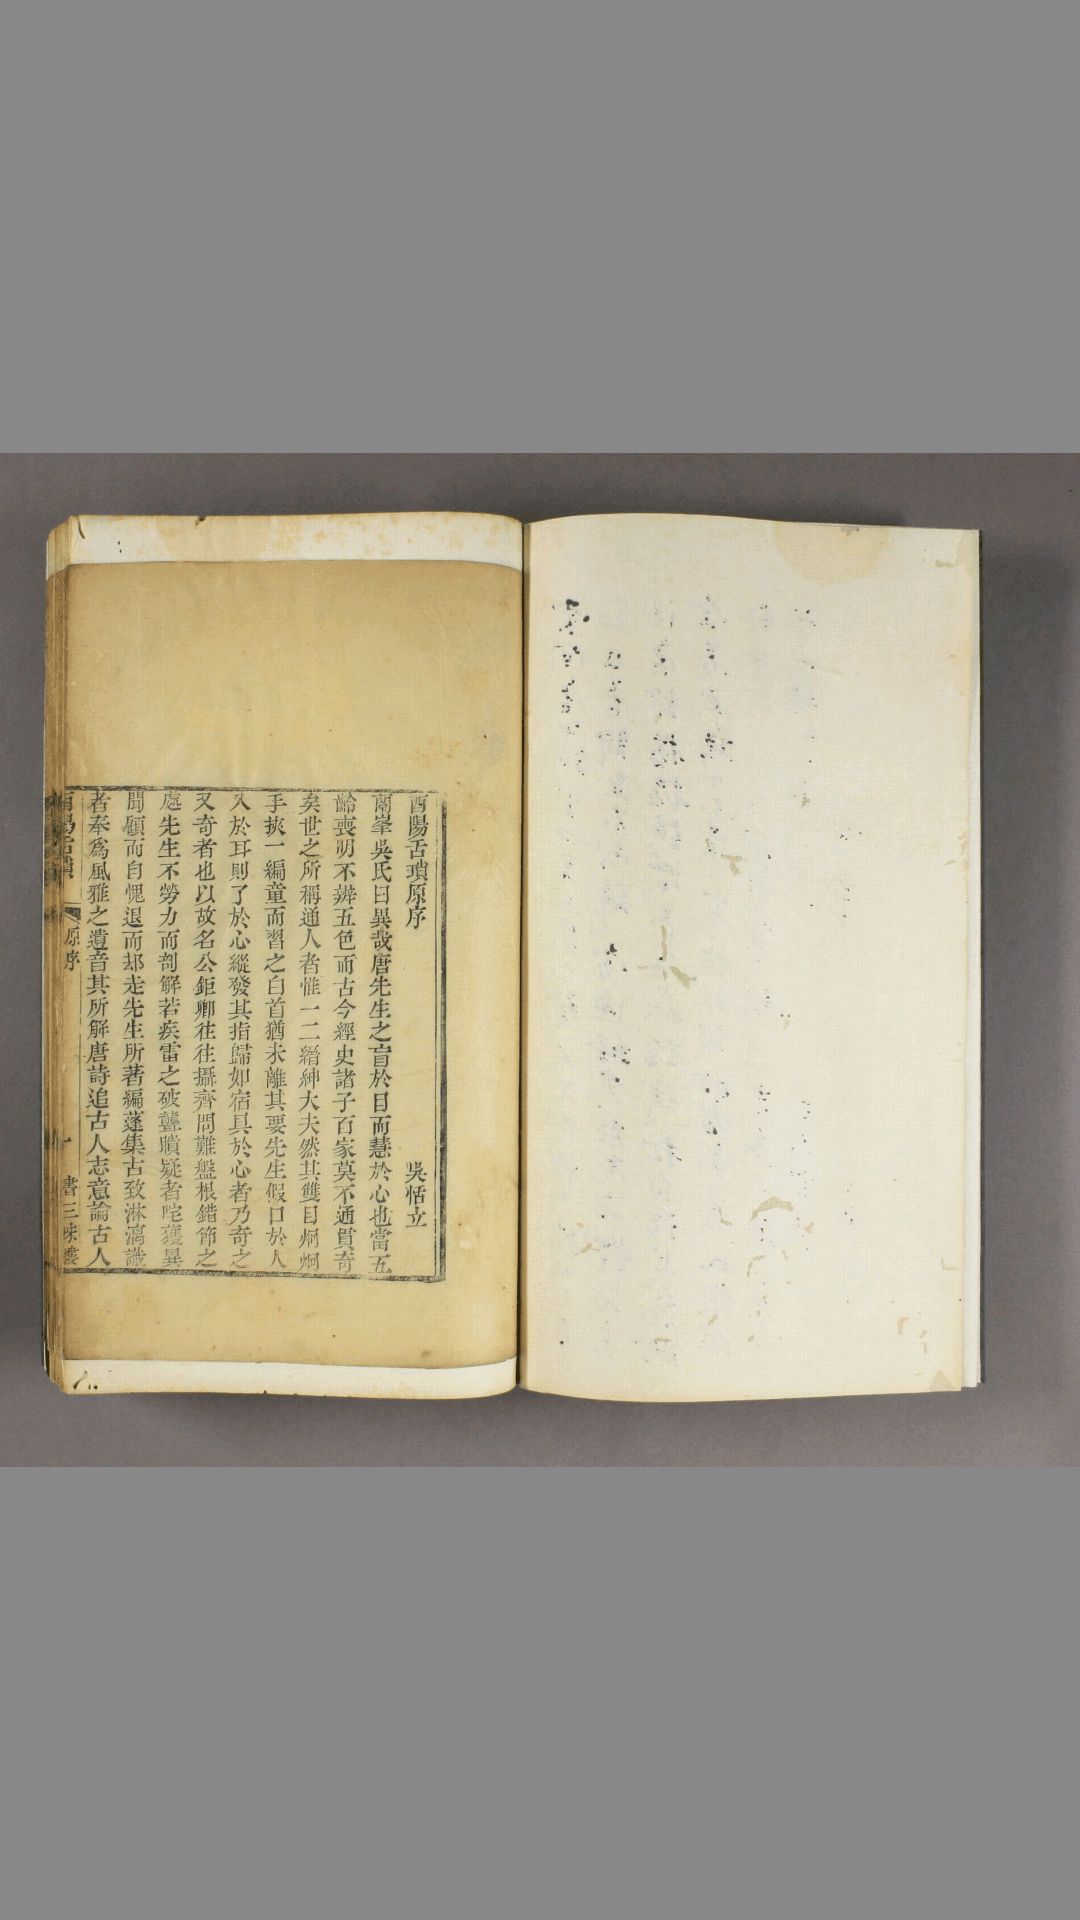 酉陽舌瑣原序
吳恬立
南峯吳氏曰異哉唐先生之盲於目而慧於心也當五
齡喪明不辨五色而古今經史諸子百家莫不通貫奇
矣世之所稱通人者惟一二縉紳大夫然其雙目炯炯
手挾一編童而習之白首猶未離其要先生假口於人
入於耳則了於心縱發其指歸如宿具於心者乃奇之
又奇者也以故名公鉅卿往往攝齊問難盤根錯節之
處先生不勞力而剖解若疾雷之破聾聵疑者咤獲異
聞顧而自愧退而却走先生所著編蓬集古致淋漓識
者奉爲風雅之遺音其所解唐詩追古人志意論古人
原序
書三味樓